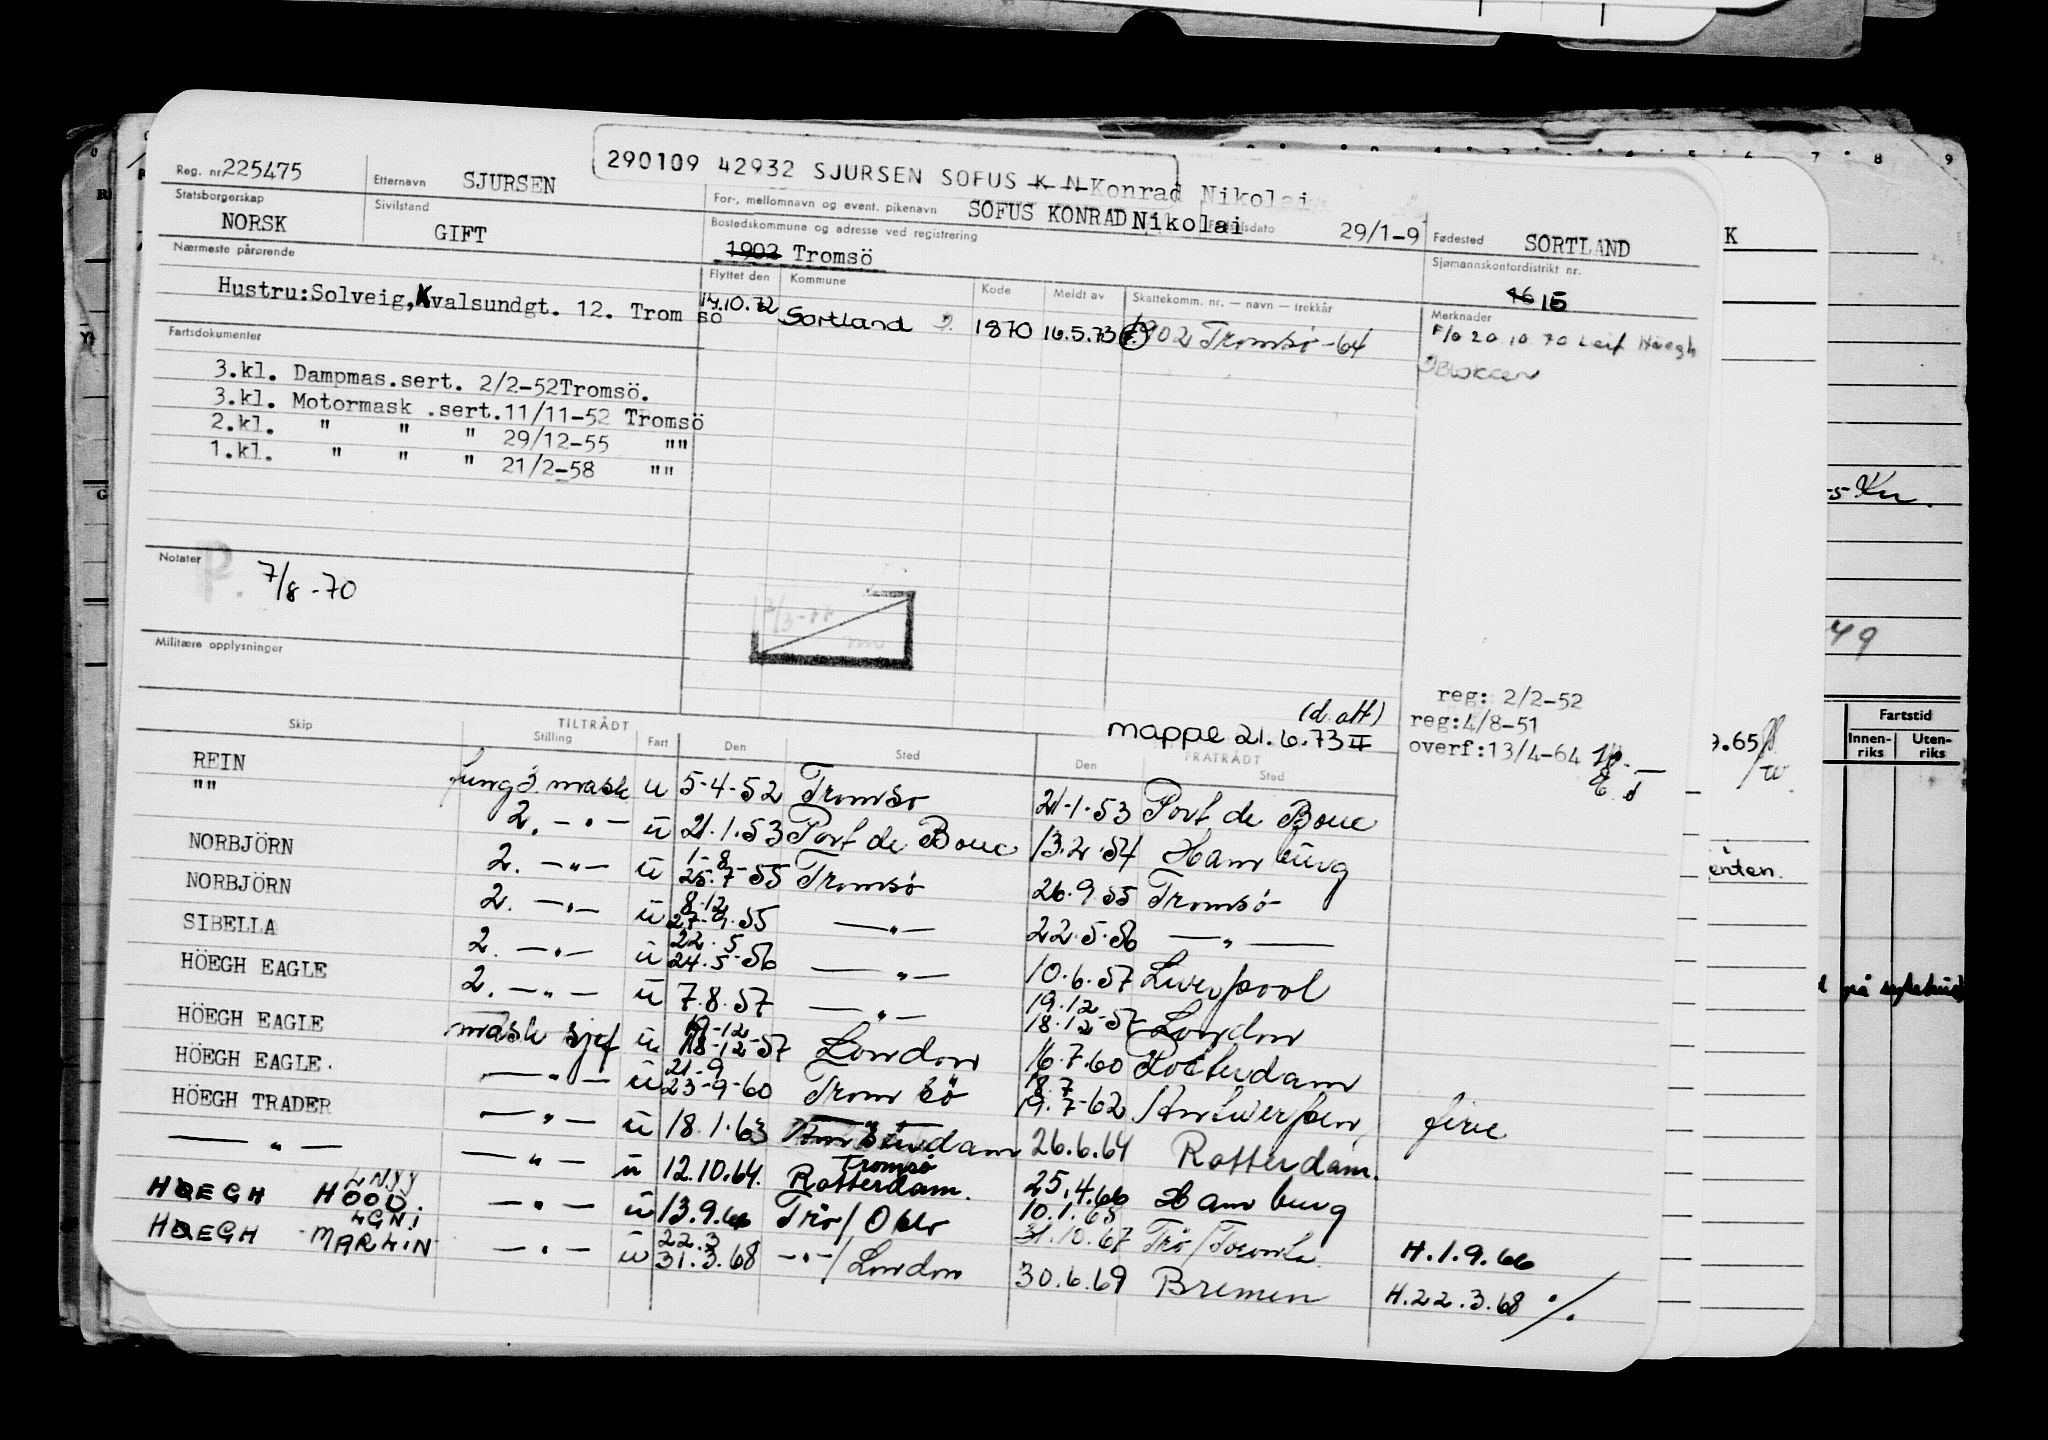 290109 42932 SJURSEN SOFUS K N Konrad Nikolai
Reg. nr. 225475 Etternavn SJURSEN For-, mellomnavn og event. pikenavn SOFUS KONRAD Nikolai Fødselsdato 29/1-9 Fødested SORTLAND
Statsborgerskap NORSK Sivilstand GIFT Bostedskommune og adresse ved registrering 1902 Tromsö Sjømannskontordistrikt nr. 16 15
Nærmeste pårørende Flyttet den Kommune Kode Meldt av Skattekomm. nr. — navn — trekkår Merknader
Hustru:Solveig,Kvalsundgt. 12. Trom sö 14.10.72 Sortland 1870 16.5.73 1902 Tromsø -64 F/o 20.10.70 Leif Höegh
Blokken
Fartsdokumenter
3.kl. Dampmas.sert. 2/2-52Tromsö.
3.kl. Motormask .sert.11/11-52 Tromsö
2.kl. " " " 29/12-55 ""
1.kl. " " " 21/2-58 ""
Notater P. 7/8-70
Militære opplysninger
reg: 2/2-52
(d.att) reg:4/8-51
mappe 21.6.73 II overf:13/4-64
TILTRÅDT FRATRÅDT
Skip Stilling Fart Den Sted Den Sted
REIN fung 3. mask u 5-4-52 Tromsø 21-1-53 Port de Bouc
"" 2. —"— u 21.1.53 Port de Bouc 13.2.54 Hamburg
1-8
NORBJÖRN 2. —"— u 25.7-55 Tromsø 26.9.55 Tromsø
8-12
NORBJÖRN 2. —"— u 27-9.55 —"— 22.5.56 —"—
22.5
SIBELLA 2. —"— u 24.5-56 —"— 10.6.57 Liverpool
19.12
HÖEGH EAGLE 2. —"— u 7.8.57 —"— 18.12-57 London
19-12
HÖEGH EAGLE mask sjef u 18-12-57 London 16.7.60 Rotterdam
21-9 18.7
HÖEGH EAGLE. —"— u 23-9-60 Tromsö 19.7-62 Antwerpen ferie
HÖEGH TRADER —"— u 18.1.63 Amsterdam 26.6.64 Rotterdam.
Tromsø
—"— —"— u 12.10.64. Rotterdam. 25.4.66 Hamburg
LNYY 10.1.68
HØEGH HOOD. —"— u 13.9.66 Trö/Oslo 31.10.67 Trö/ H.1.9.66
LGNI 22.3
HØEGH MARLIN —"— u 31.3.68 —"—/London 30.6.69 Bremen H.22.3.68 ./.
K
-5-
49
Fartstid
Innen-riks Uten-riks
9.65
enten.
på sykehus